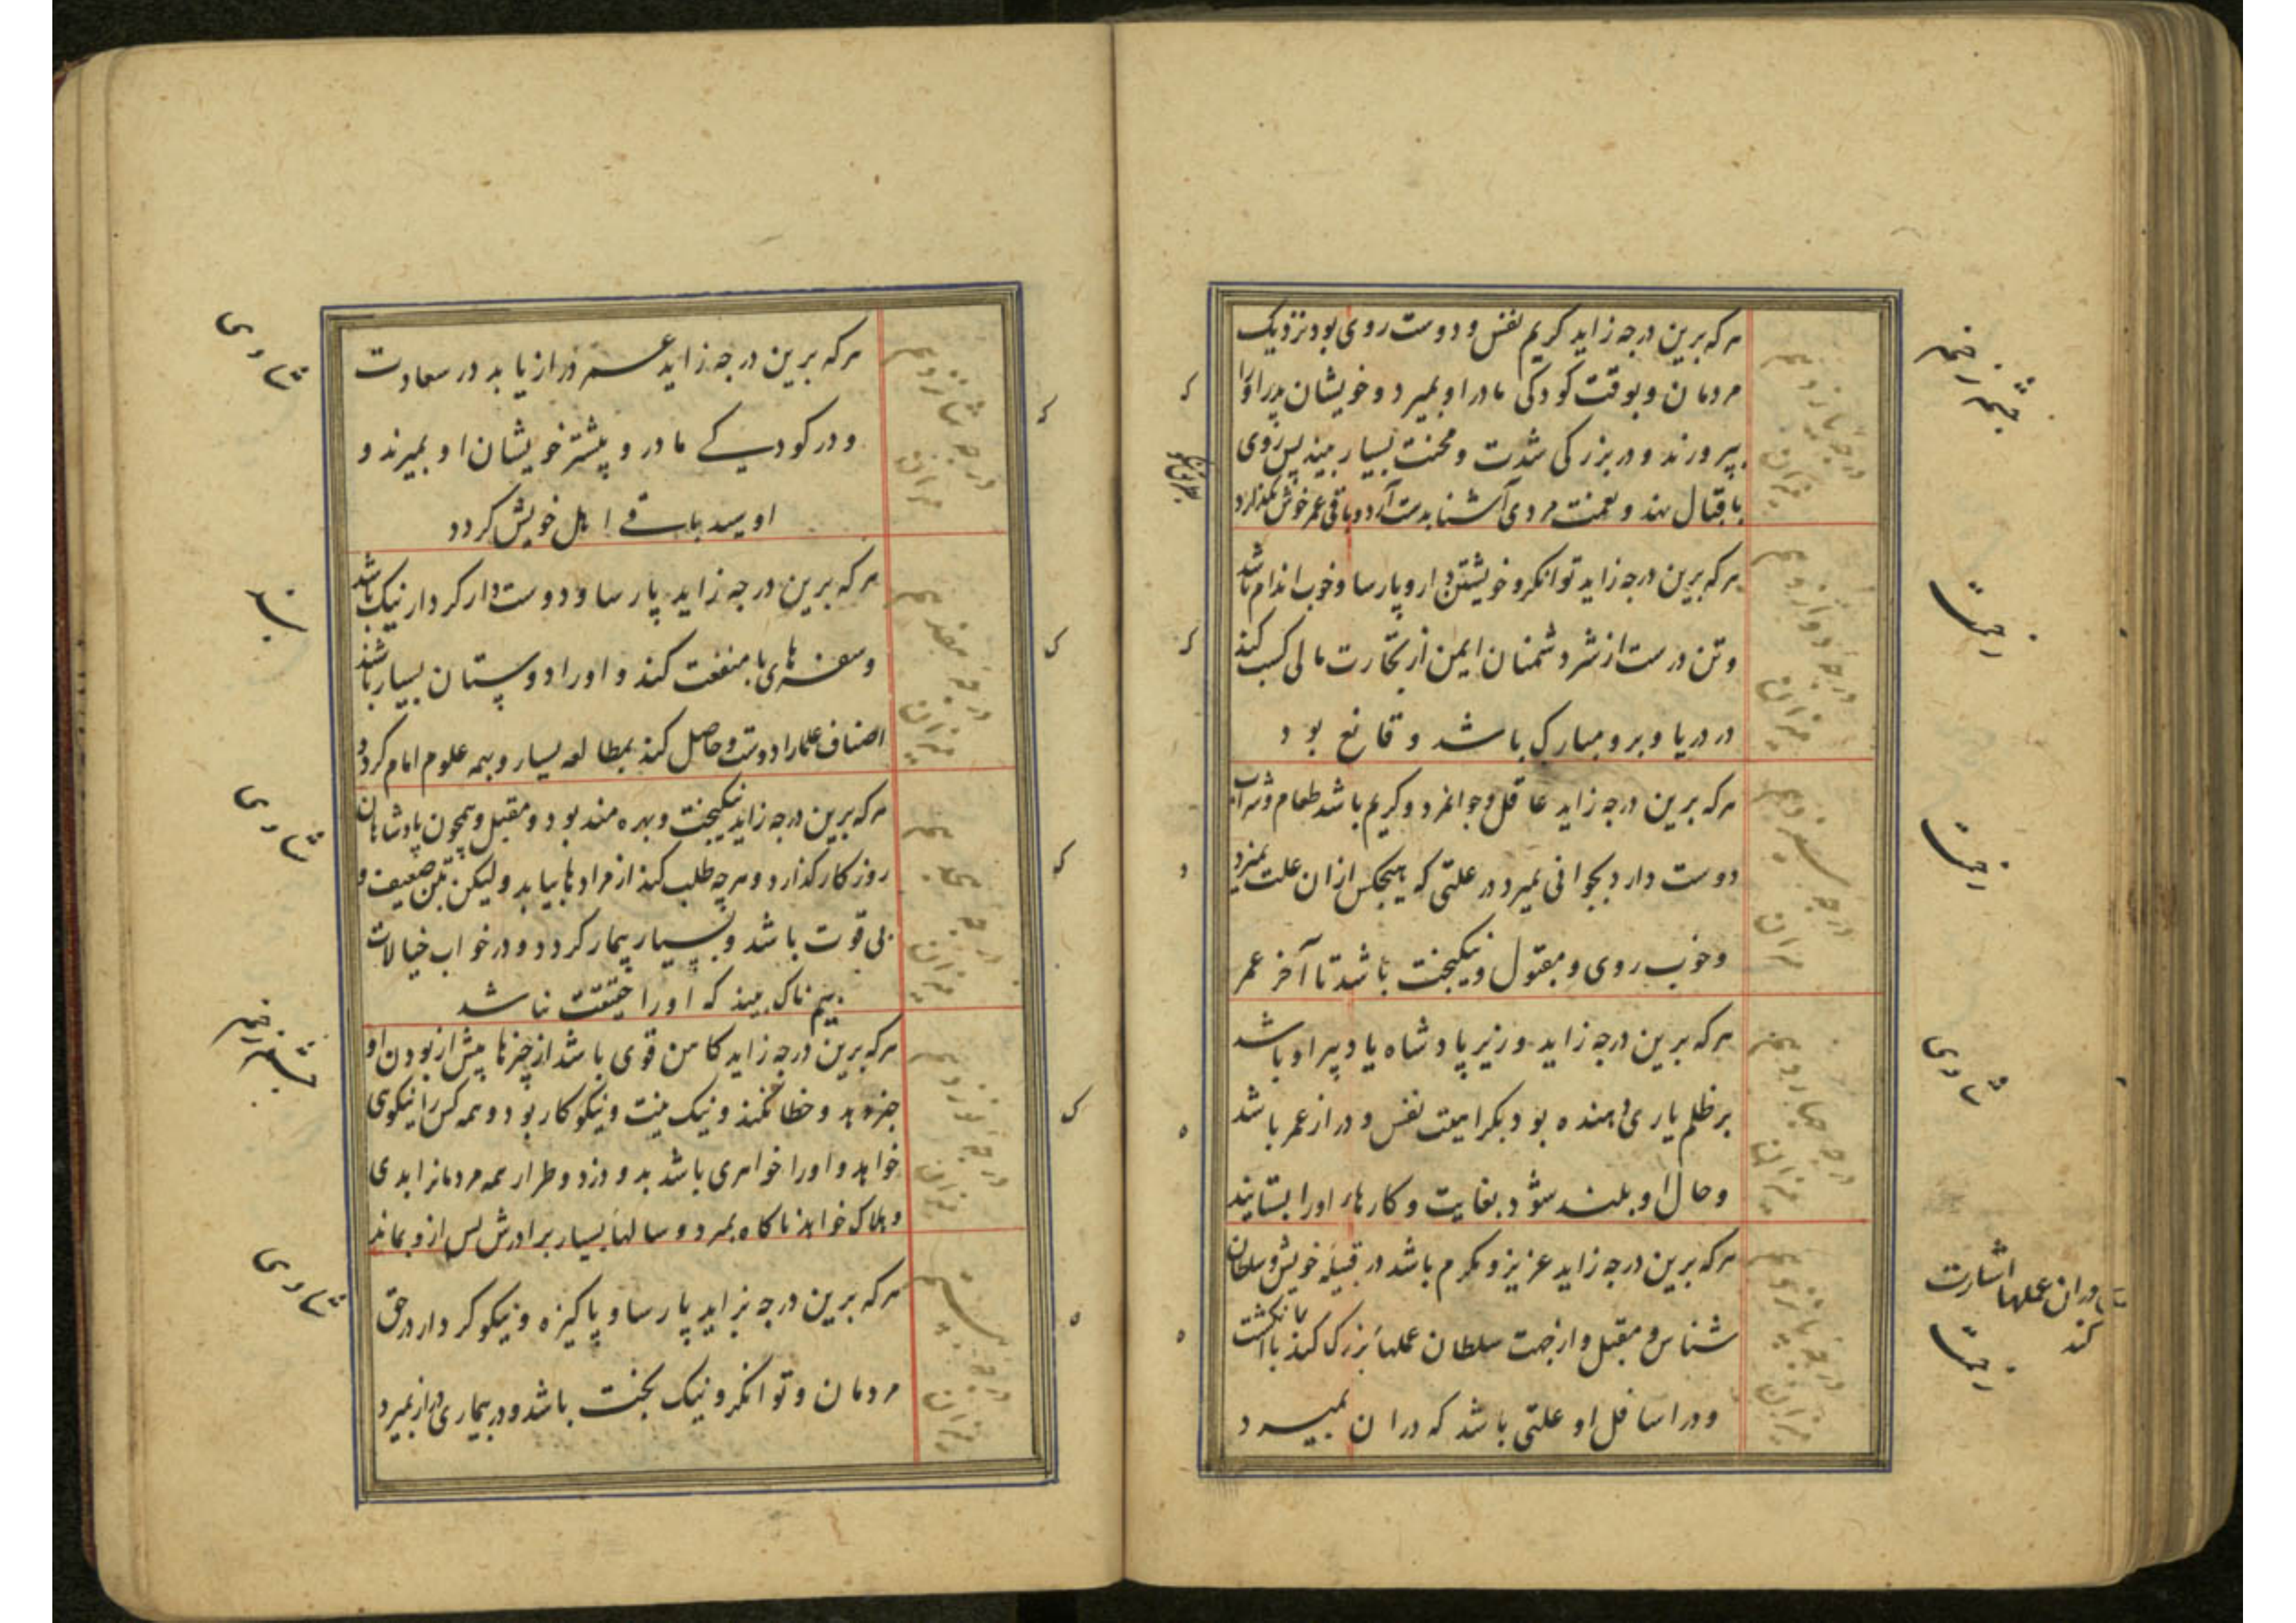 هرکه برین درجه زاید کریم نفس و دوست روی بود نزدیک
مردمان و بوقت کودکی مادر او بمیرد و خویشان پدر او را
بپرورند و در بزرکی شدت و محنت بسیار بیند پس روی
باقبال نهد و نعمت مردی آشنا بدست آرد و باقی عمر خوش بگذارد
درجه یازدهم
میزان
هرکه برین درجه زاید توانکر و خویشتن دار و پارسا و خوب اندام باشد
و تن درست از شر دشمنان ایمن از تجارت مالی کسب کند
در دریا و بر و مبارک باشد و قانع بود
درجه دوازدهم
میزان
هرکه برین درجه زاید عاقل و جوانمرد و کریم باشد طعام و شراب
دوست دارد بجوانی بمیرد در علتی که هیچکس ازان علت نمیرد
و خوب روی و مقبول و نیکبخت باشد تا آخر عمر
درجه سیزدهم
میزان
هرکه برین درجه زاید وزیر پادشاه یا دبیر او باشد
بر ظلم یاری دهنده بود بکرامیت نفس و دراز عمر باشد
و حال او بلند شود بغایت و کارهاء او را بستایند
درجه چهاردهم
میزان
هرکه برین درجه زاید عزیز و مکرم باشد در قبیله خویش و سلطان
شناس و مقبل و از جهت سلطان عملهاء بزرک کند با انکشت
و در اسافل او علتی باشد که دران بمیرد
درجه پانزدهم
میزان
دران عملها اشارت
کند
هرکه برین درجه زاید عمر دراز یابد در سعادت
و در کودکی مادر و پیشتر خویشان او بمیرند و
او سید باقی اهل خویش کردد
درجه شانزدهم
میزان
هرکه برین درجه زاید پارسا و دوست دار کردار نیک باشد
و سفرهای با منفعت کند و او را دوستان بسیار باشند
اصناف علما را دوست و حاصل کند بمطالعه بسیار و بهمه علوم امام کردد
درجه هفدهم
میزان
هرکه برین درجه زاید نیکبخت و بهره مند بود و مقبل و همچون پادشاهان
روزکار کذارد و هرچه طلب کند از مرادها بیابد ولیکن بتن ضعیف و
بی قوت باشد و بسیار بیمار کردد و در خواب خیالات
بیم ناک بیند که او را حقیقت نباشد
درجه هجدهم
میزان
هرکه برین درجه زاید کاهن قوی باشد از چیزها پیش از بودن او
خبر دهد و خطا نکند و نیک نیت و نیکو کار بود و همه کس را نیکوی
خواهد و او را خواهری باشد بد و دزد و طرار همه مردمانرا بدی
و هلاک خواهد ناکاه بمیرد و سالهاء بسیار برادرش پس ازو بماند
درجه نوزدهم
میزان
هرکه برین درجه بزاید پارسا و پاکیزه و نیکو کردار در حق
مردمان و توانکر و نیک بخت باشد و در بیماری دراز بمیرد
درجه بیستم
میزان